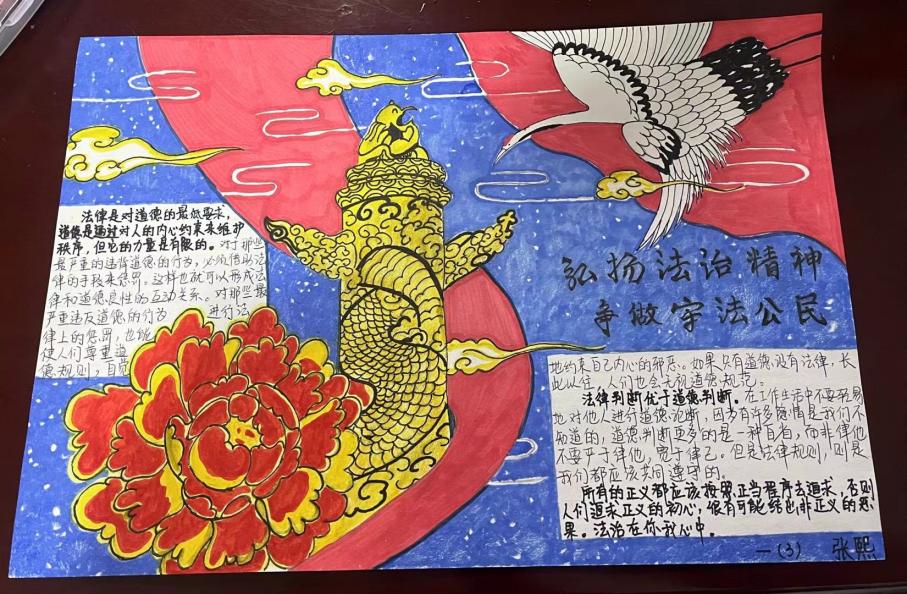 弘扬法治精神
争做守法公民
法律是对道德的最低要求，
道德是通过对人的内心约束来维护
秩序，但它的力量是有限的。对于那些
最严重的违背道德的行为，必须借助法
律的手段来惩罚。这样也就可以形成法
律和道德良性的互动关系。对那些最
严重违反道德的行为 进行法
律上的惩罚，也能
使人们尊重道
德规则，自觉
地约束自己内心的邪恶。如果只有道德没有法律，长
此以往，人们也会无视道德规范。
法律判断优于道德判断。在工作生活中不要轻易
地对他人进行道德论断，因为有许多隐情是我们不
知道的，道德判断更多的是一种自省，而非律他
不要严于律他，宽于律己。但是法律规则，则是
我们都应该共同遵守的。
所有的正义都应该按照正当程序去追求，否则
人们追求正义的初心，很有可能结出非正义的恶
果。法治在你我心中。
一(3) 张熙